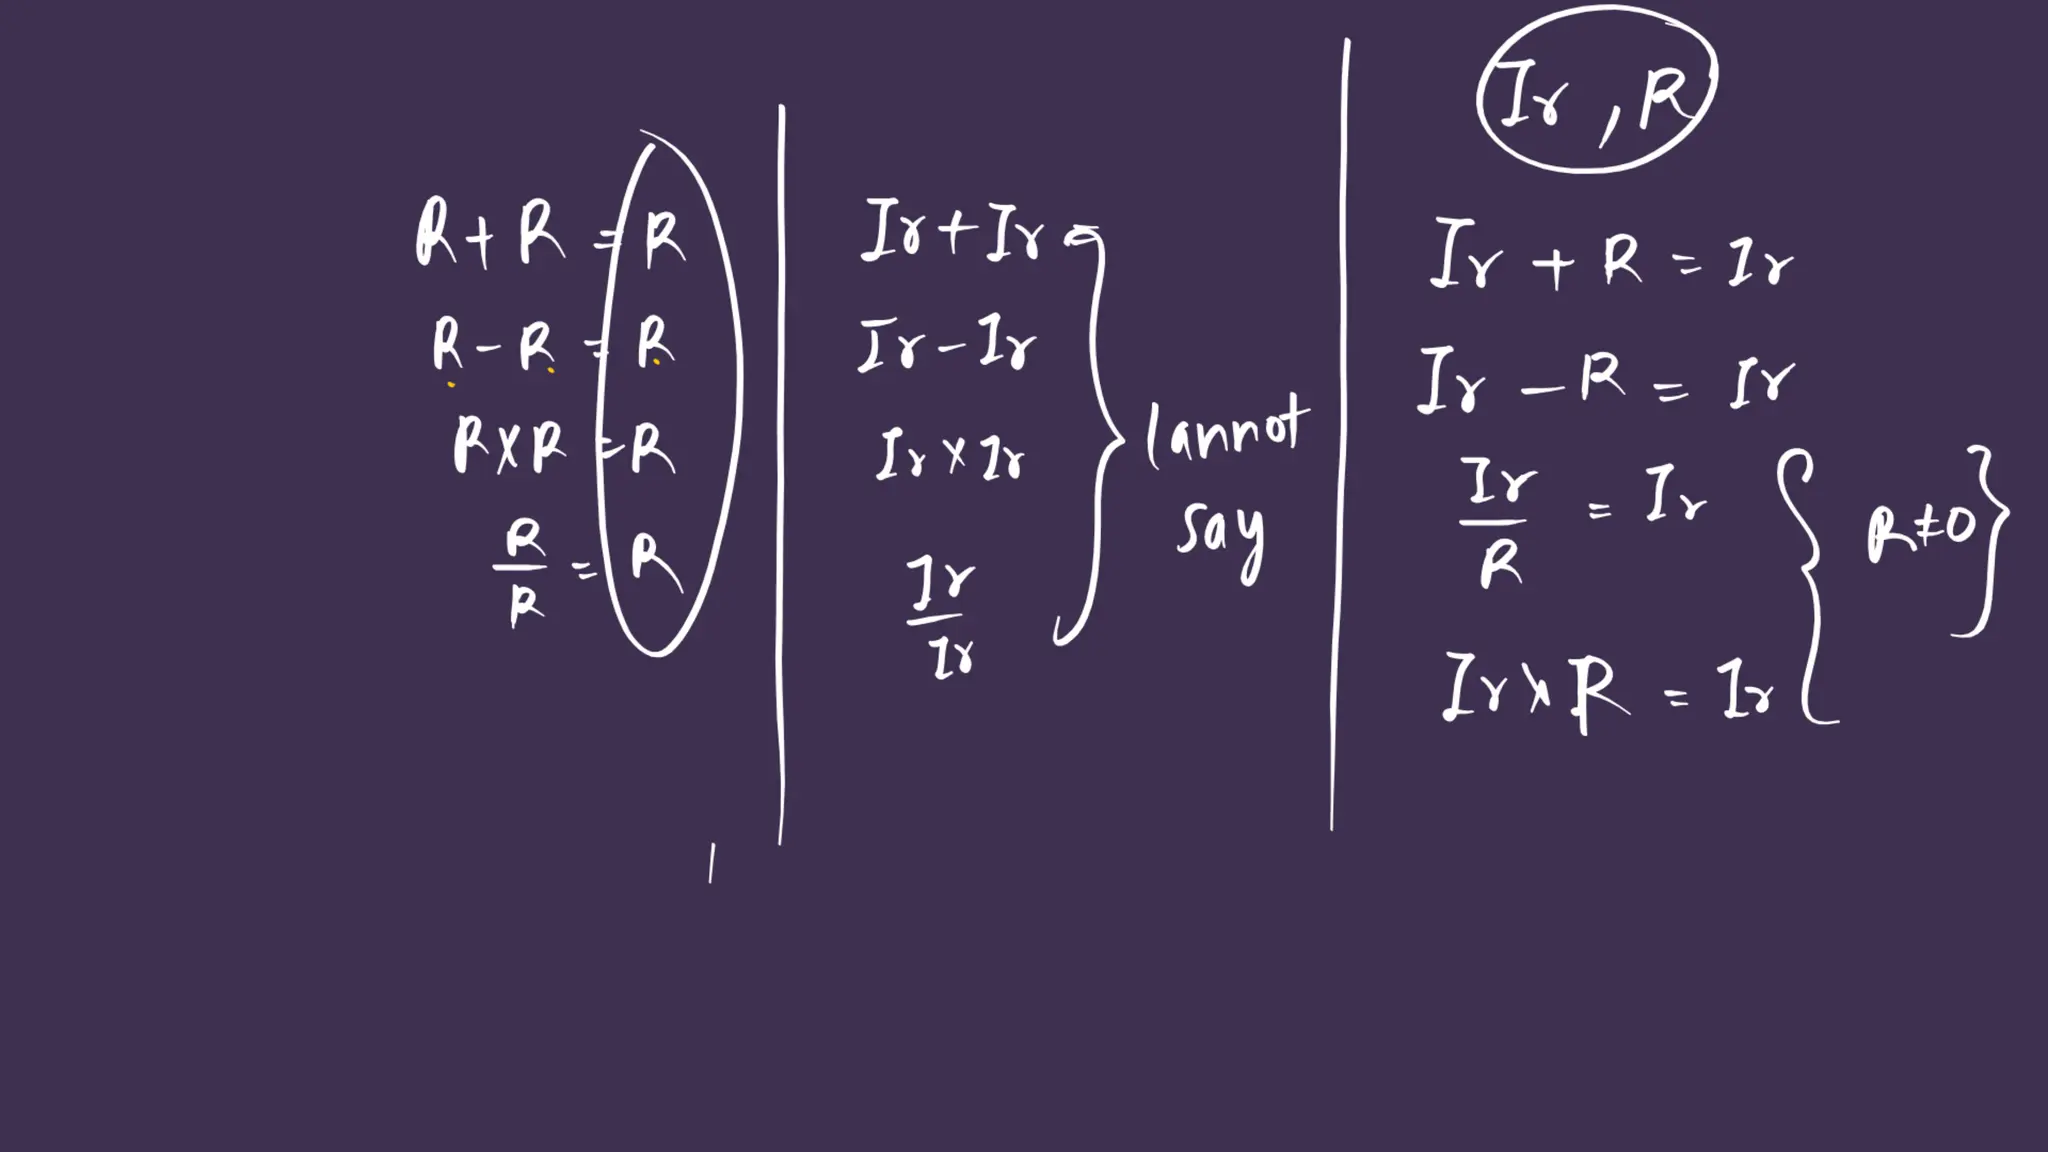 R + R = R
R - R = R
R × R = R
R/R = R
Ir + Ir
Ir - Ir
Ir × Ir
Ir/Ir
Cannot
say
Ir , R
Ir + R = Ir
Ir - R = Ir
Ir/R = Ir
Ir × R = Ir
{ R ≠ 0 }